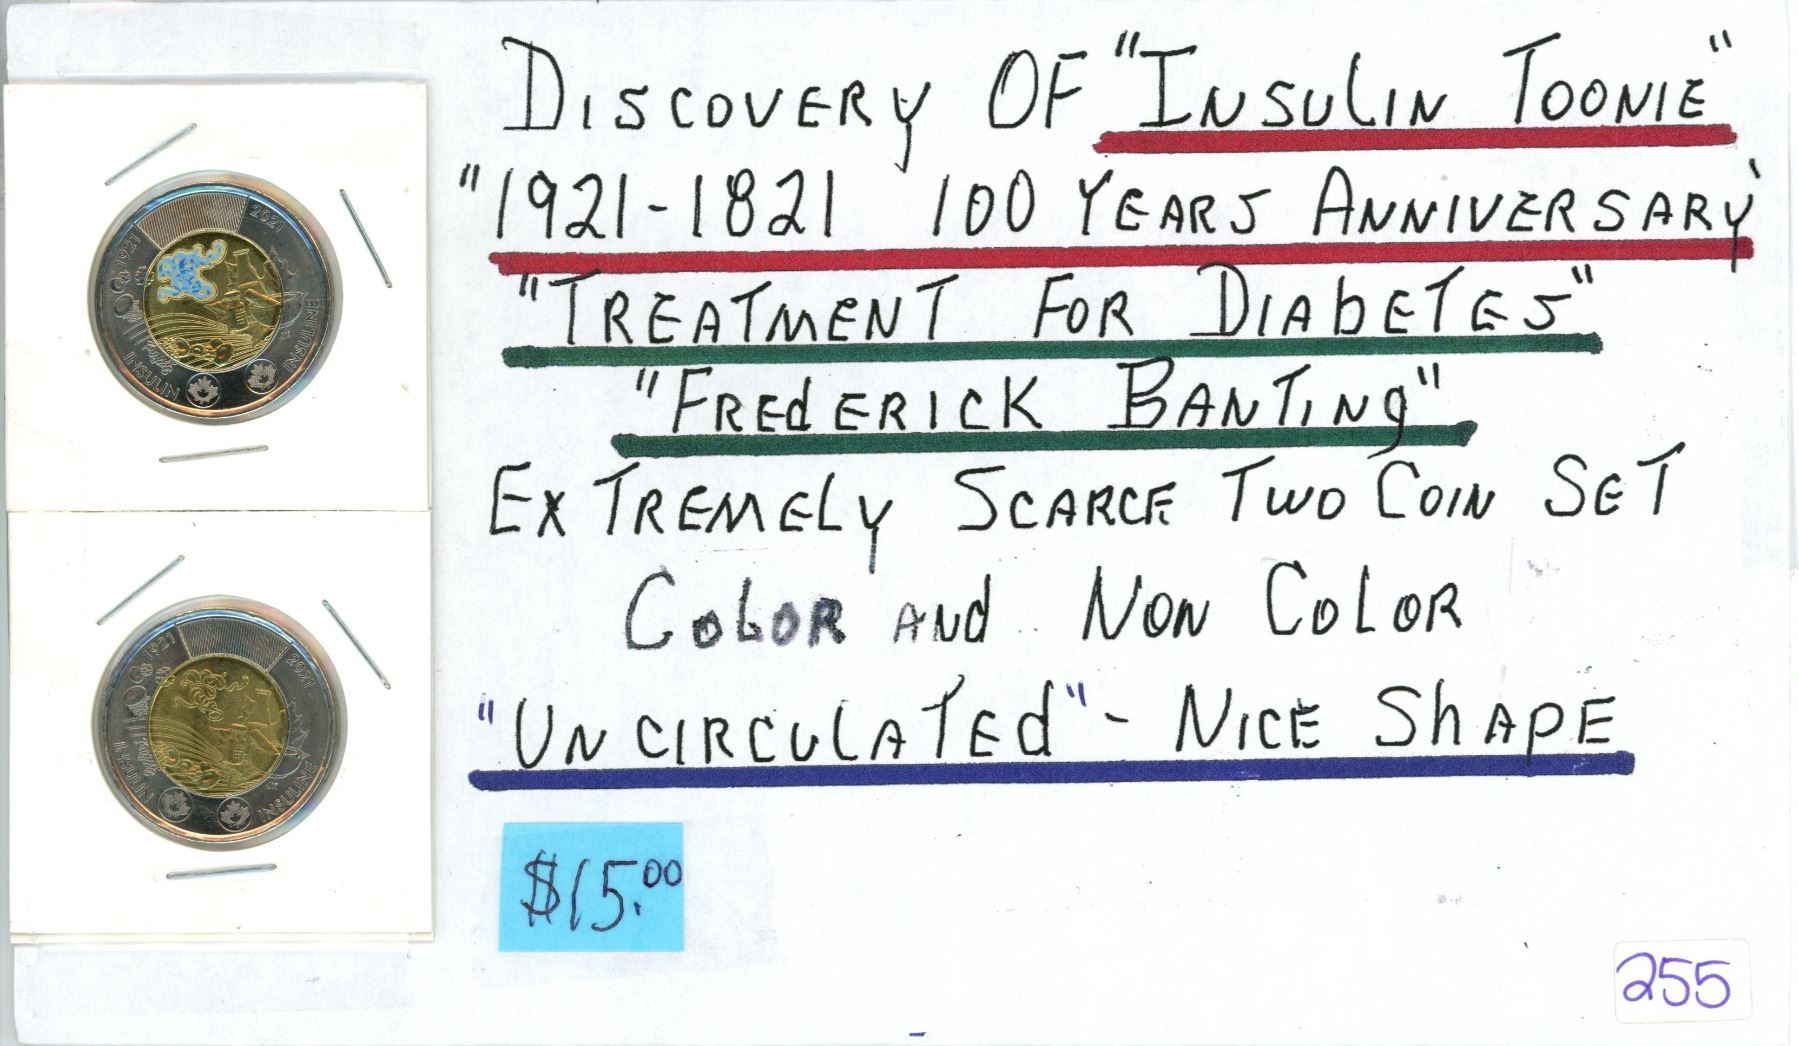 DISCOVERY OF "INSULIN TOONIE"
"1921-1821 100 YEARS ANNIVERSARY'
"TREATMENT FOR DIABETES"
"FREDERICK BANTING"
EXTREMELY SCARCE TWO COIN SET
COLOR AND NON COLOR
"UNCIRCULATED" - NICE SHAPE
$15.00
255
1921
2021
INSULIN
INSULIN
1921
2021
INSULIN
INSULINE